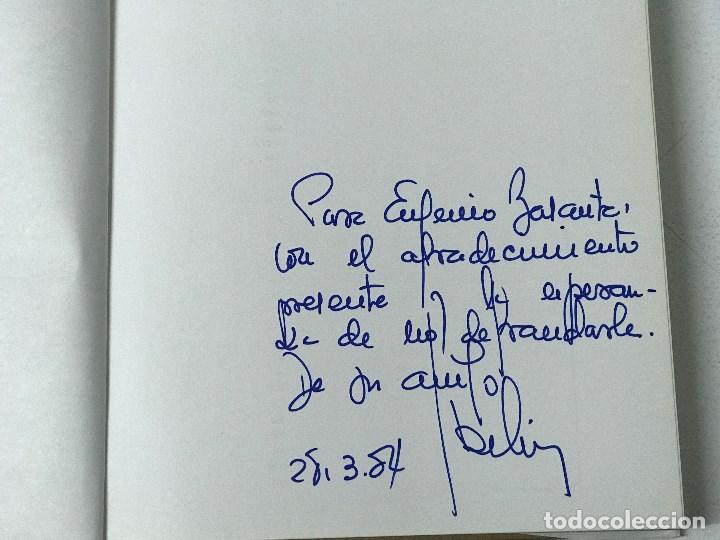 Para Eugenio Basanta,
con el agradecimiento
presente y la esperan-
za de no defraudarle.
De su amigo
28.3.84
todocoleccion